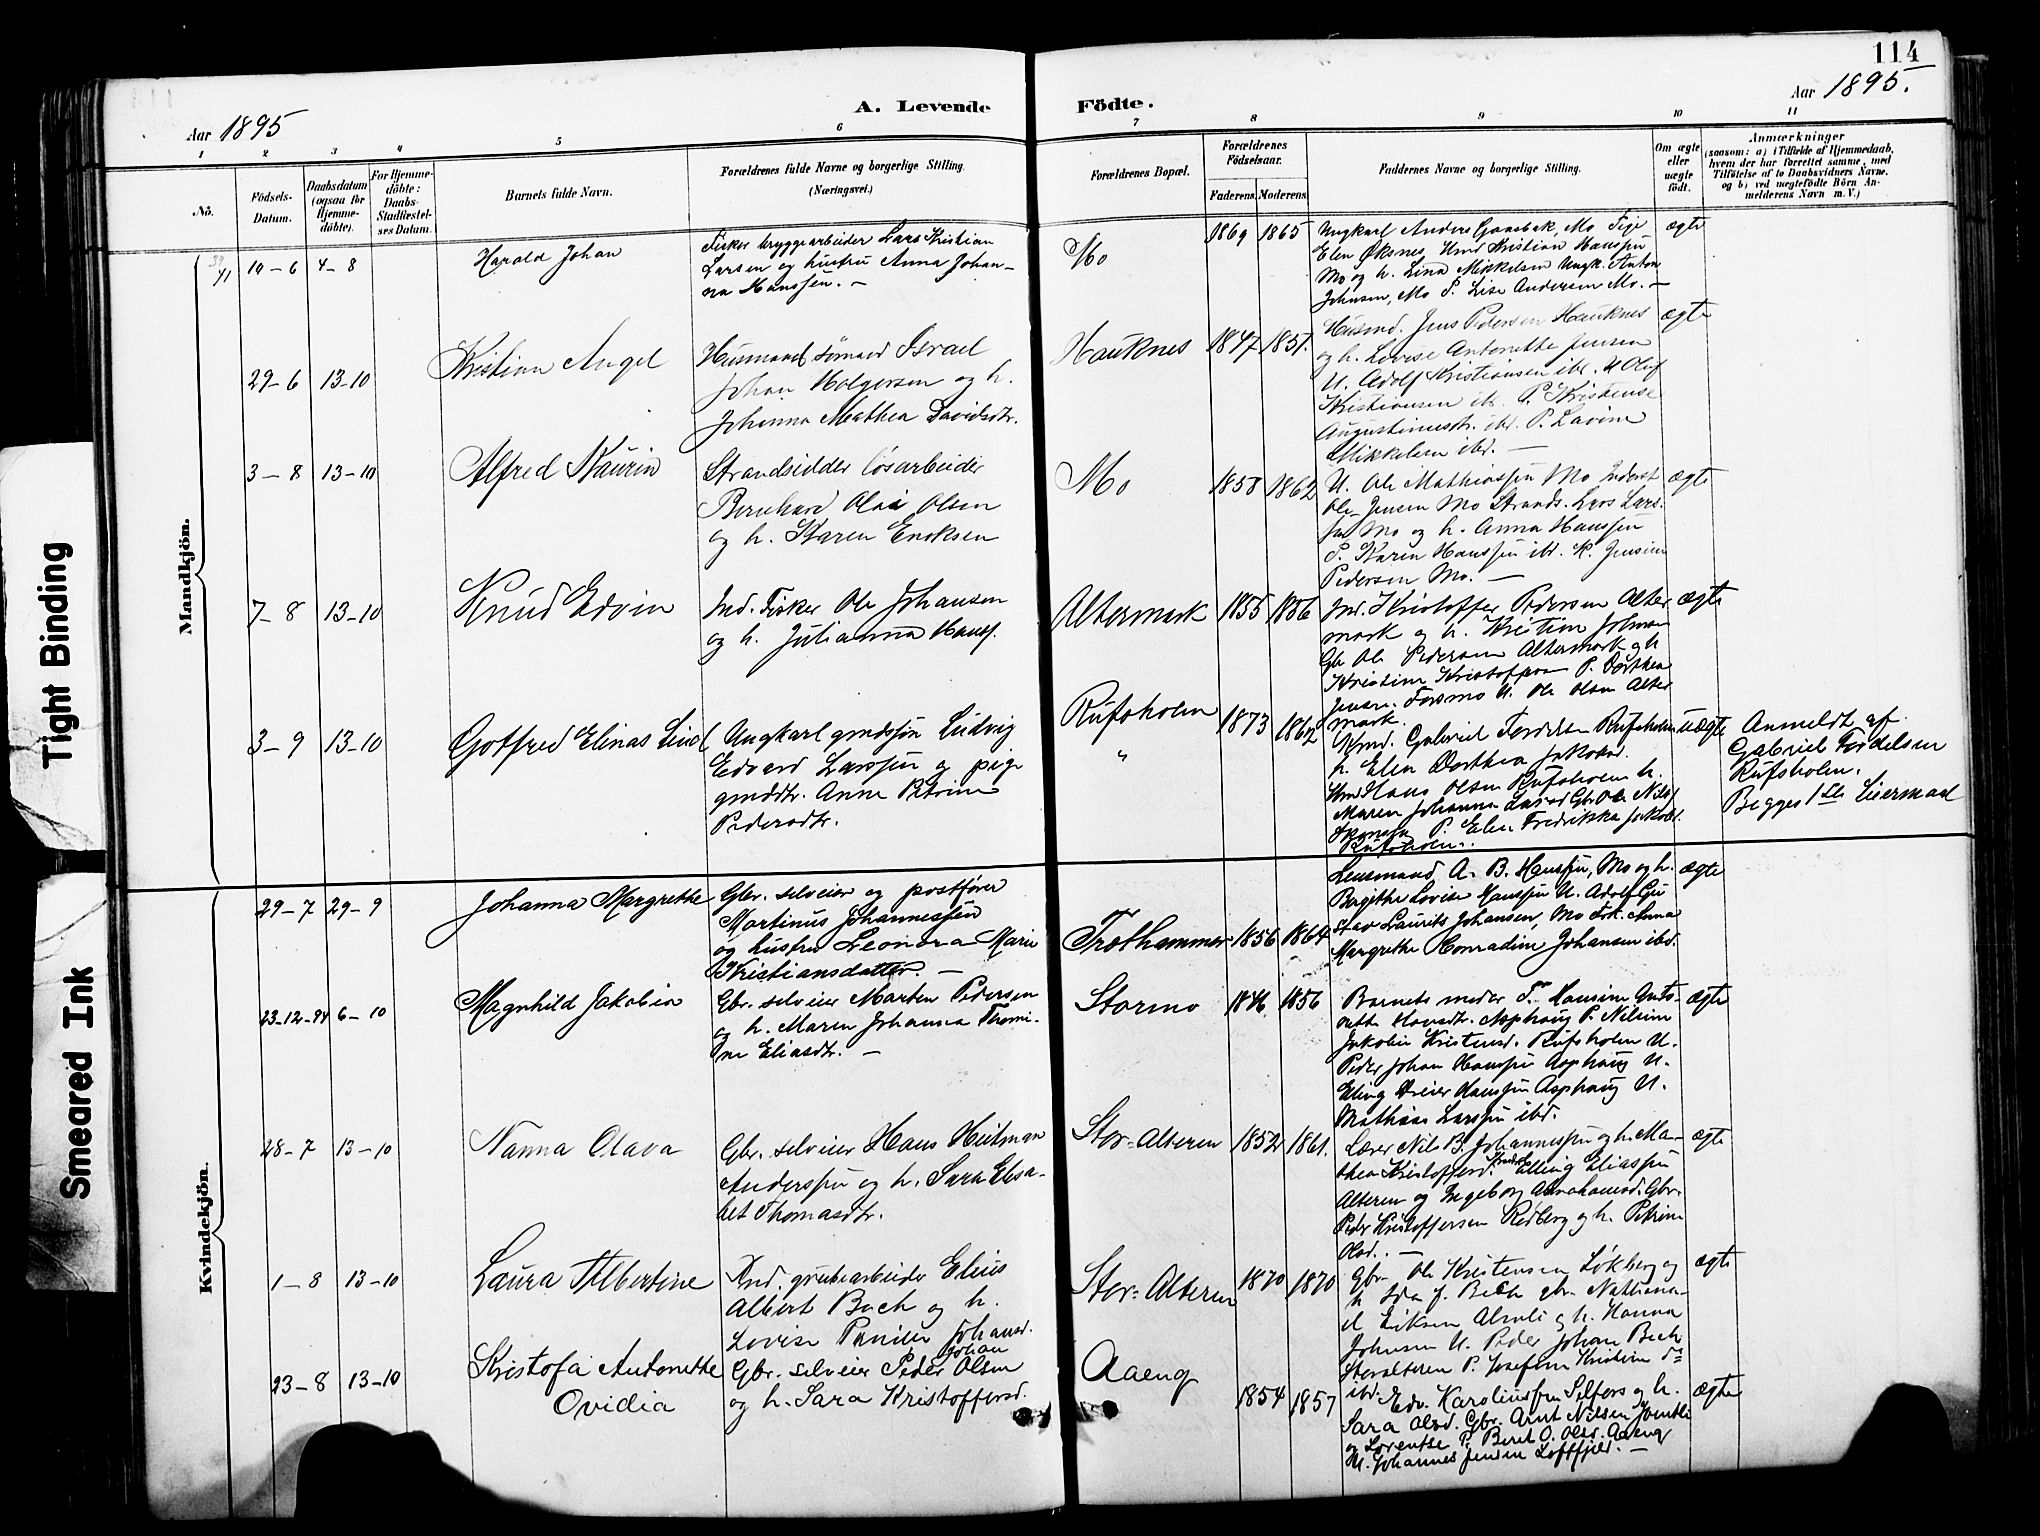 114
Aar 1895
A. Levende Födte.
Aar 1895.
1 2 3 4 5 6 7 8 9 10 11
Nö.
Födsels-
Datum.
Daabsdatum
(ogsaa for
Hjemme-
döbte).
For Hjemme-
döbte:
Daabs-
Stadfæstel-
ses Datum.
Barnets fulde Navn.
Forældrenes fulde Navne og borgerlige Stilling.
(Næringsvei.)
Forældrenes Bopæl.
Forældrenes
Födselsaar.
Faderens. Moderens.
Faddernes Navne og borgerlige Stilling.
Om ægte
eller
uægte
födt.
Anmærkninger
(saasom: a) i Tilfælde af Hjemmedaab,
hvem der har forrettet samme, med
Tilföielse af to Daabsvidners Navne.
og b) ved uægtefödte Börn An-
melderens Navn m. V.)
Mandkjön.
41 10-6 4-8
Harald Johan
Fisker bryggearbeider Lars Kristian
Larsen og hustru Anna Johan-
na Hanssen. -
Mo
1869 1865
Ungkarl Anders Gaasbak, Mo Pige
Elen Øksnes, Hmd Kristian Hanssen
Mo og h. Lina Mikkelsen Ungk. Anton
Johnsen, Mo P. Lise Andersen Mo. -
ægte
29-6 13-10
Kristian Angel
Husmand sømand Israel
Johan Holgersen og h.
Johanna Mathea Davidsdtr.
Hauknes
1847 1851.
Husmd. Jens Pedersen Hauknes
og h. Lovise Antonette Jensen
U. Adolf Kristiansen ibd. U Oluf
Kristiansen ib. P. Kristense
Augustinusdtr. ibd. P. Lavine
Mikkelsen ibd. -
ægte
3-8 13-10
Alfred Kaurin
Strandsidder løsarbeider
Bernhard Olai Olsen
og h. Karen Eriksen
Mo
1858 1862
U. Ole Mathiassen Mo Inderst
Ole Jensen Mo Strands. Lars Lars-
sen Mo og h. Anna Hanssen
P. Karen Hanssen ibd. K. Jensine
Pedersen Mo. -
ægte
7-8 13-10
Knud Edvin
Ind. Fisker Ole Johansen
og h. Julianna Hansd.
Altermark
1855 1856
Ind. Kristoffer Pedersen Alter
mark og h. Kristine Johnsen
Gbr Ole Pedersen Altermark og h
Kristine Kristoffersen P. Dorthea
Jensen Forsmo U. Ole Olsen Alter
mark.
ægte
3-9 13-10
Gotfred Elinas Lind
Ungkarl gmdssøn Ludvig
Edvard Larssen og pige
gmddtr. Anne Petrine
Pedersdtr.
Rufsholm
"
1873 1862
Hmd. Gabriel Fordelsen Rufsholm
h. Elen Dorthea Jakobsd.
Hmd Hans Olsen Rufsholm h.
Maren Johanna Larsd Gbr Ole Nils
P. Elen Fredrikke Jakobs.
Rufsholm.
uægte
Anmeldt af
Gabriel Fordelsen
Rufsholm.
Begges 1ste Leiermaal
Kvindekjön.
29-7 29-9
Johanna Margrethe
Gbr. selveier og postfører
Martinus Johannessen
og hustru Leonora Marie
Kristiansdatter. -
Træthammer
1856 1864
Lensmand A. B. Hanssen, Mo og h.
Bergitha Lovise Hanssen U. Adolf Gu
stav Laurits Johansen, Mo Frk. Anna
Margrethe Conradine Johansen ibd.
ægte
23-12-94 6-10
Magnhild Jakobia
Gbr. selveier Marten Pedersen
og h. Maren Johanna Thomi-
ne Eliasdtr. -
Stormo
1846 1856
Barnets moder P. Hansine Anto-
nette Hansdtr. Asphaug P. Nilsine
Jakobin Kristensd. Rufsholm U.
Peder Johan Hanssen Asphaug U.
Eling Dreier Hanssen Asphaug U.
Mathias Larssen ibd.
ægte
28-7 13-10
Nanna Olava
Gbr. selveier Hans Heitman
Anderssen og h. Sara Elisa-
bet Thomasdtr.
Stor-Alteren
1852 1861.
Lærer Nils B. Johannessen og h. Ma-
thea Kristoffersd. Inderst Elling Eliassen
Alteren og Ingeborg Abrahamsd. Gbr.
Peder Kristoffersen Redberg og h. Petrine
Olsd. -
ægte
1-8 13-10
Laura Albertine
Ind. grubearbeider Elius
Albert Bech og h.
Lovise Pernille Johansd.
Stor-Alteren
1870 1870
Gbr. Ole Kristensen Løkberg og
h Ida f. Bech gbr. Nathana-
el Eriksen Alvoli og h. Hanna
Johnsen U. Peder Johan Bech
Storalteren P. Josefine Kristine ds
ibd.
ægte
23-8 13-10
Kristofa Antonette
Ovidia
Johan
Gbr. selveier Peder Olsen
og h. Sara Kristoffersd.
Aaeng
1854 1857
Edv. Karoliussen Selfors og h.
Sara Olsd. Gbr. Arnt Nilsen
og Lorentse P. Beret O. Olsd. Aaeng
U. Johannes Jensen Loftfjeld. -
ægte
Tight Binding
Smeared Ink